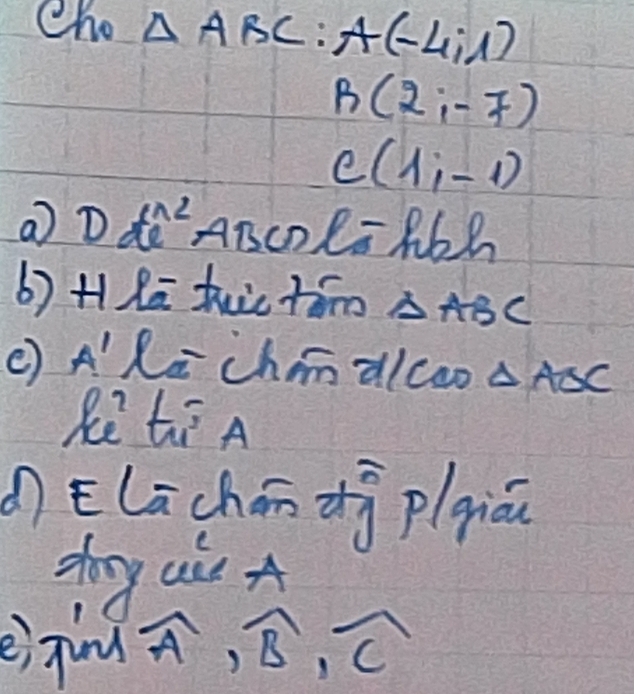 Cho Δ ABC: A(-4;1)
B(2;-7)
C(1;-1)
a) D để ABCD là hbh
b) H là trực tâm Δ ABC
c) A' là chân đ/cao Δ ABC
kẻ từ A
d) E là chân đg p/giác
trong của A
e) Tính Â, B̂, Ĉ